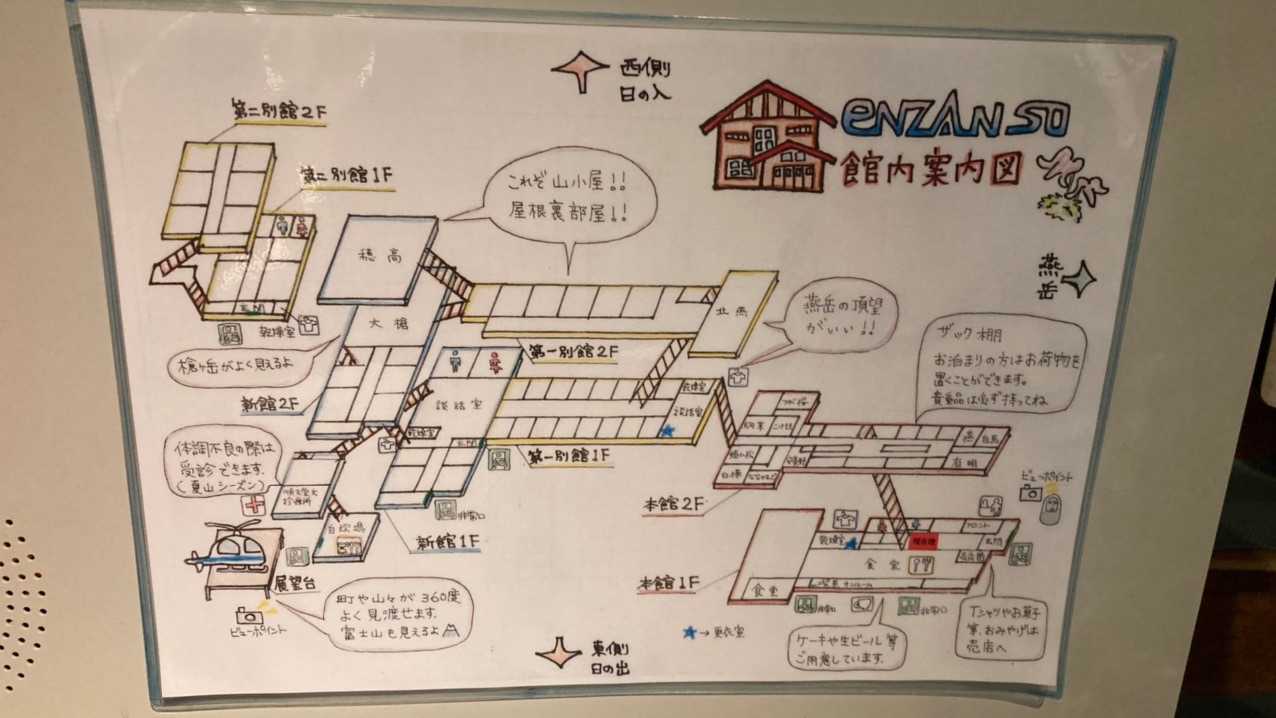 西側
日の入
ENZANSO
館内案内図
第二別館2F
第二別館1F
これぞ山小屋!!
屋根裏部屋!!
穂高
燕岳
燕岳の頂望
がいい!!
北燕
大槍
玄関
乾燥室
槍ヶ岳がよく見えるよ
第一別館2F
ザック棚
お泊まりの方はお荷物を
置くことができます。
貴重品は必ず持ってね
新館2F
談話室
乾燥室
談話室
乾燥室
玄関
第一別館1F
体調不良の際は
受診できます。
(夏山シーズン)
順天堂大
診療所
燕
白馬
有明
本館2F
ビューポイント
自炊場
非常口
新館1F
乾燥室
フロント
玄関
売店
食堂
本館1F
食堂
喫茶サンルーム
展望台
ビューポイント
町や山々が360度
よく見渡せます。
富士山も見えるよ
非常口
非常口
Tシャツやお菓子
等、おみやげは
売店へ
→更衣室
ケーキや生ビール等
ご用意しています。
東側
日の出